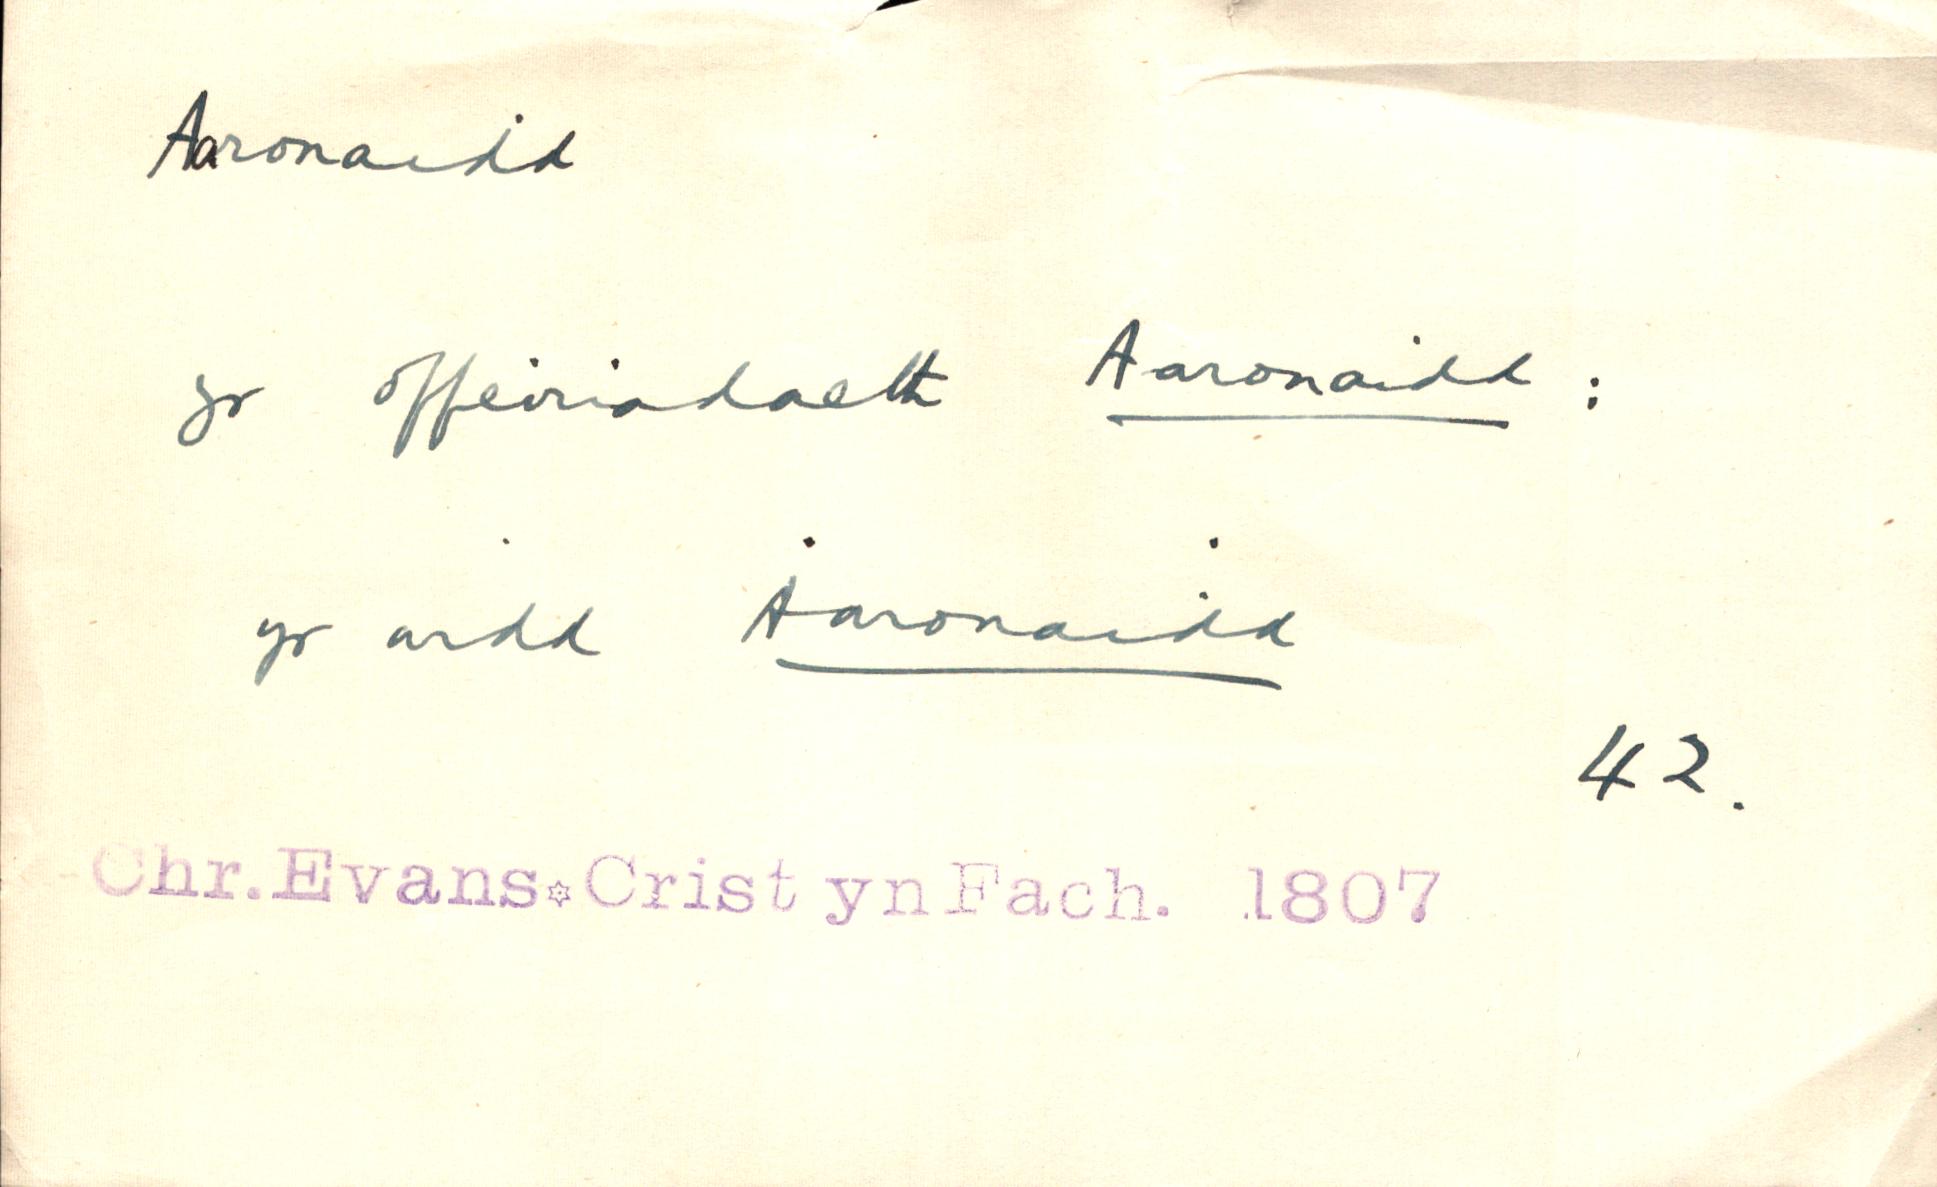 Aaronaidd
yr offeiriadaeth Aaronaidd :
yr urdd Aaronaidd
42.
Chr. Evans✡Crist yn Fach. 1807